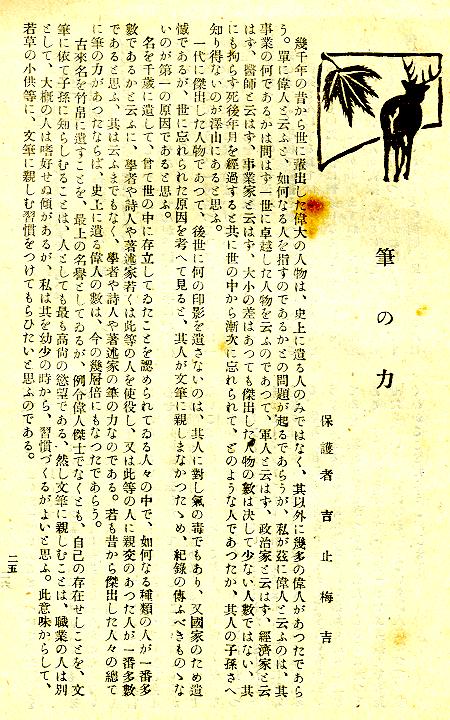 筆の力
保護者 吉止梅吉
幾千年の昔から世に輩出した偉大の人物は、史上に遺る人のみではなく、其以外に幾多の偉人があつたであら
う。單に偉人と云ふと、如何なる人を指すのであるかとの問題が起るであらうが、私が茲に偉人と云ふのは、其
事業の何であるかは問はず一世に卓越した人物を云ふのであつて、軍人と云はず、政治家と云はず、經濟家と云
はず、醫師と云はず、事業家と云はず、大小の差はあつても傑出した人物の數は決して少ない人數ではない、其
にも拘らず死後年月を經過すると共に世の中から漸次に忘れられて、どのような人であつたか、其人の子孫さへ
知り得ないのが澤山にあると思ふ。
一代に傑出した人物であつて、後世に何の印影を遺さないのは、其人に對し氣の毒でもあり、又國家のため遺
憾であるが、世に忘れられた原因を考へて見ると、其人が文筆に親しまなかつたゝめ、紀錄の傳ふべきものゝな
いのが第一の原因であると思ふ。
名を千歳に遺して、曾て世の中に存立してゐたことを認められてゐる人々の中で、如何なる種類の人が一番多
數であるかと云ふに、學者や詩人や著述家若くは此等の人を使役し、又は此等の人に親交のあつた人が一番多數
であると思ふ、其は云ふまでもなく、學者や詩人や著述家の筆の力なのである。若も昔から傑出した人々の總て
に筆の力があつたならば、史上に遺る偉人の數は、今の幾層倍にもなつたであらう。
古來名を竹帛に遺すことを、最上の名譽としてゐるが、例令偉人傑士でなくとも、自己の存在せしことを、文
筆に依て子孫に知らしむることは、人としても最も高尚の慾望である、然し文筆に親しむことは、職業の人は別
として、大概の人は嗜好せぬ傾があるが、私は其を幼少の時から、習慣づくるがよいと思ふ。此意味からして、
若草の小供等に、文筆に親しむ習慣をつけてもらひたいと思ふのである。
二五